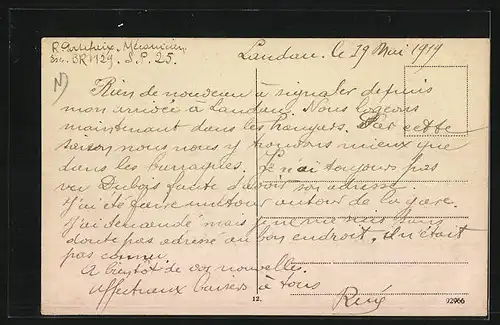 R. Portefaix. Mécanicien
Esc. BR 129. S.P. 25.
Landau. le 29 Mai 1919
Rien de nouveau à signaler depuis
mon arrivée à Landau. Nous logeons
maintenant dans les hangars. Par cette
saison nous nous y trouvons mieux que
dans les barraques. Je n'ai toujours pas
vu Dubois faute d'avoir son adresse.
J'ai été faire un tour autour de la gare.
J'ai demandé mais je ne me suis sans
doute pas adressé au bon endroit, il n'était
pas connu.
A bientôt de vos nouvelles.
Affectueux baisers à tous
René
12.
02966